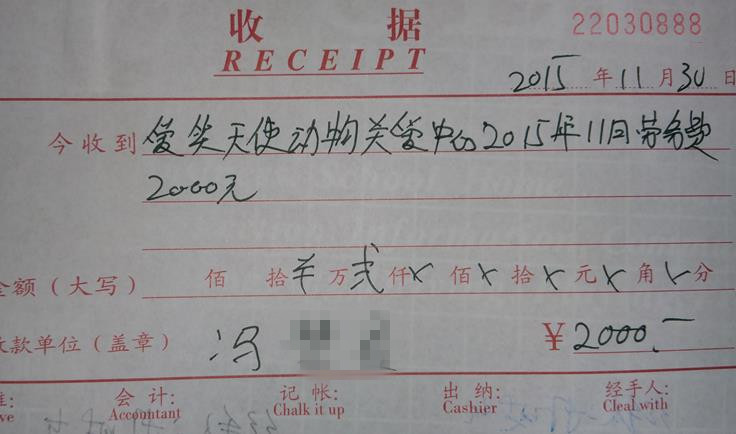 收 据 22030888
RECEIPT
2015 年 11 月 30 日
今收到 爱笑天使动物关爱中心2015年11月劳务费
2000元
金额（大写） 佰 拾 ¥ 万 贰 仟 x 佰 x 拾 x 元 x 角 x 分
收款单位（盖章） 冯 ¥2000.–
会 计: 记 帐: 出 纳: 经手人:
Accountant Chalk it up Cashier Cleal with